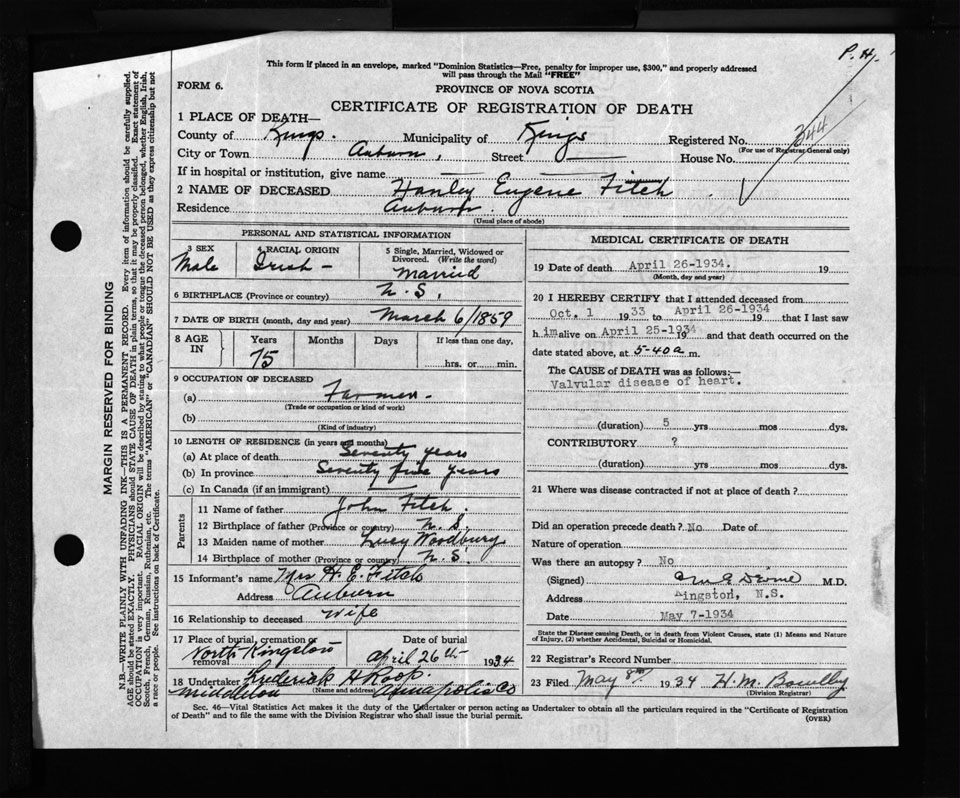 P. H.
This form if placed in an envelope, marked "Dominion Statistics—Free, penalty for improper use, $300," and properly addressed
will pass through the Mail "FREE"
FORM 6.
PROVINCE OF NOVA SCOTIA
CERTIFICATE OF REGISTRATION OF DEATH
1 PLACE OF DEATH—
County of Kings. Municipality of Kings Registered No. 344
(For use of Registrar General only)
City or Town Auburn, Street — House No.
If in hospital or institution, give name — —
2 NAME OF DECEASED Hanley Eugene Fitch
Residence Auburn.
(Usual place of abode)
PERSONAL AND STATISTICAL INFORMATION
3 SEX 4 RACIAL ORIGIN 5 Single, Married, Widowed or
Divorced. (Write the word)
Male Irish — Married
6 BIRTHPLACE (Province or country) N. S.
7 DATE OF BIRTH (month, day and year) March 6/1859
8 AGE IN Years Months Days If less than one day,
75 hrs. or min.
9 OCCUPATION OF DECEASED
(a) Farmer.
(Trade or occupation or kind of work)
(b)
(Kind of industry)
10 LENGTH OF RESIDENCE (in years and months)
(a) At place of death Seventy years
(b) In province Seventy five years
(c) In Canada (if an immigrant) —
Parents
11 Name of father John Fitch.
12 Birthplace of father (Province or country) N. S.
13 Maiden name of mother Lucy Woodbury
14 Birthplace of mother (Province or country) N. S.
15 Informant's name Mrs H. E. Fitch
Address Auburn
16 Relationship to deceased Wife
17 Place of burial, cremation or
removal North Kingston
Date of burial
April 26th 1934
18 Undertaker Frederick H Roop.
Middleton (Name and address) Annapolis Co
MEDICAL CERTIFICATE OF DEATH
19 Date of death April 26-1934. 19
(Month, day and year)
20 I HEREBY CERTIFY that I attended deceased from
Oct. 1 1933 to April 26-1934 19 that I last saw
him alive on April 25-1934 19 and that death occurred on the
date stated above, at 5-40a m.
The CAUSE of DEATH was as follows:—
Valvular disease of heart.
(duration) 5 yrs mos dys.
CONTRIBUTORY ?
(duration) yrs. mos. dys.
21 Where was disease contracted if not at place of death?
Did an operation precede death? No Date of
Nature of operation
Was there an autopsy? No
(Signed) M.D.
Address Kingston, N.S.
Date May 7-1934
State the Disease causing Death, or in death from Violent Causes, state (1) Means and Nature
of Injury, (2) whether Accidental, Suicidal or Homicidal.
22 Registrar's Record Number
23 Filed May 8th 1934 H. M. Bowlby
(Division Registrar)
Sec. 46—Vital Statistics Act makes it the duty of the Undertaker or person acting as Undertaker to obtain all the particulars required in the "Certificate of Registration
of Death" and to file the same with the Division Registrar who shall issue the burial permit. (OVER)
MARGIN RESERVED FOR BINDING
N.B.—WRITE PLAINLY WITH UNFADING INK—THIS IS A PERMANENT RECORD. Every item of information should be carefully supplied.
AGE should be stated EXACTLY. PHYSICIANS should STATE CAUSE OF DEATH in plain terms, so that it may be properly classified. Exact statement of
OCCUPATION is very important. RACIAL ORIGIN will be described by stating to what people or tongue the deceased person belonged, whether English, Irish,
Scotch, French, German, Russian, Ruthenian, etc. The terms "AMERICAN" or "CANADIAN" SHOULD NOT BE USED as they express citizenship but not
a race or people. See instructions on back of Certificate.